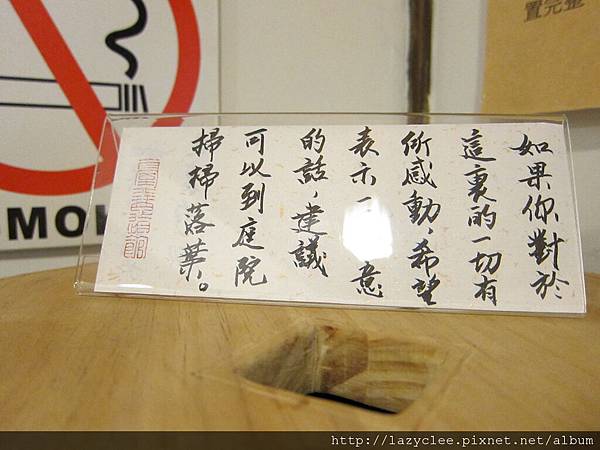 置完整
如果你對於
這裏的一切有
所感動，希望
表示 意
的話，建議
可以到庭院
掃掃落葉。
SMOK
http://lazyclee.pixnet.net/album